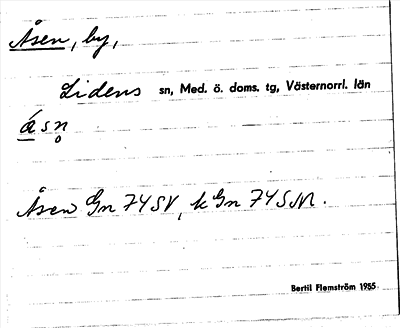 Åsen, by,
Lidens sn, Med. ö. doms. tg, Västernorrl. län
ǻsn̥
Åsen Gn 74 SV, k Gn 74 SM.
Bertil Flemström 1955